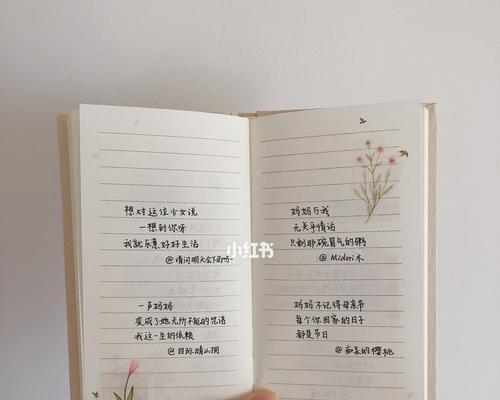 想对这位少女说
一想到你呀
我就乐意好好生活
@请问明天会下雨吗
一声妈妈
变成了她无所不能的咒语
我这一生的依赖
@四际晴山拥
妈妈与我
无关乎情话
只剩那碗冒气的粥
@Midori木
妈妈不记得母亲节
每个你回家的日子
都是节日
@痴呆的樱桃
小红书